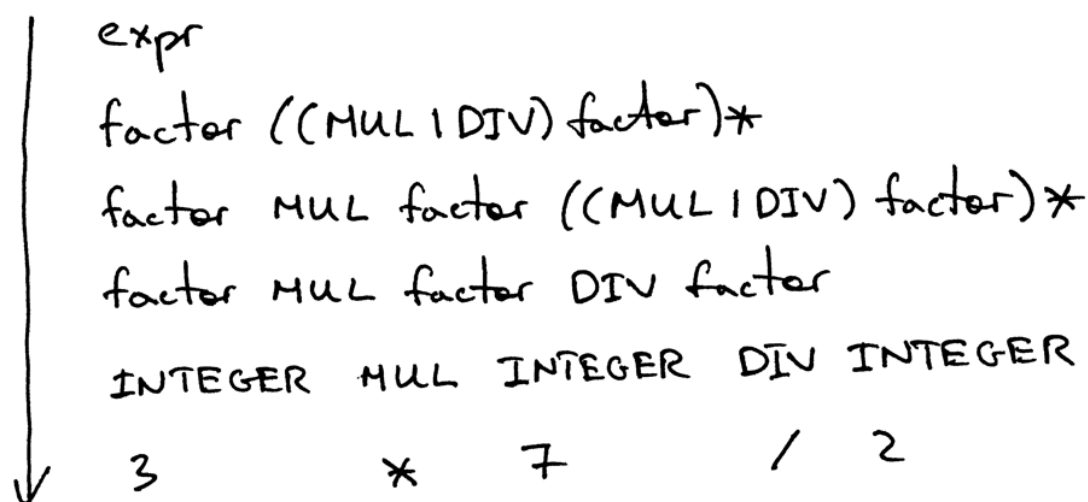 expr
factor ((MUL | DIV) factor)*
factor MUL factor ((MUL | DIV) factor)*
factor MUL factor DIV factor
INTEGER MUL INTEGER DIV INTEGER
3 * 7 / 2